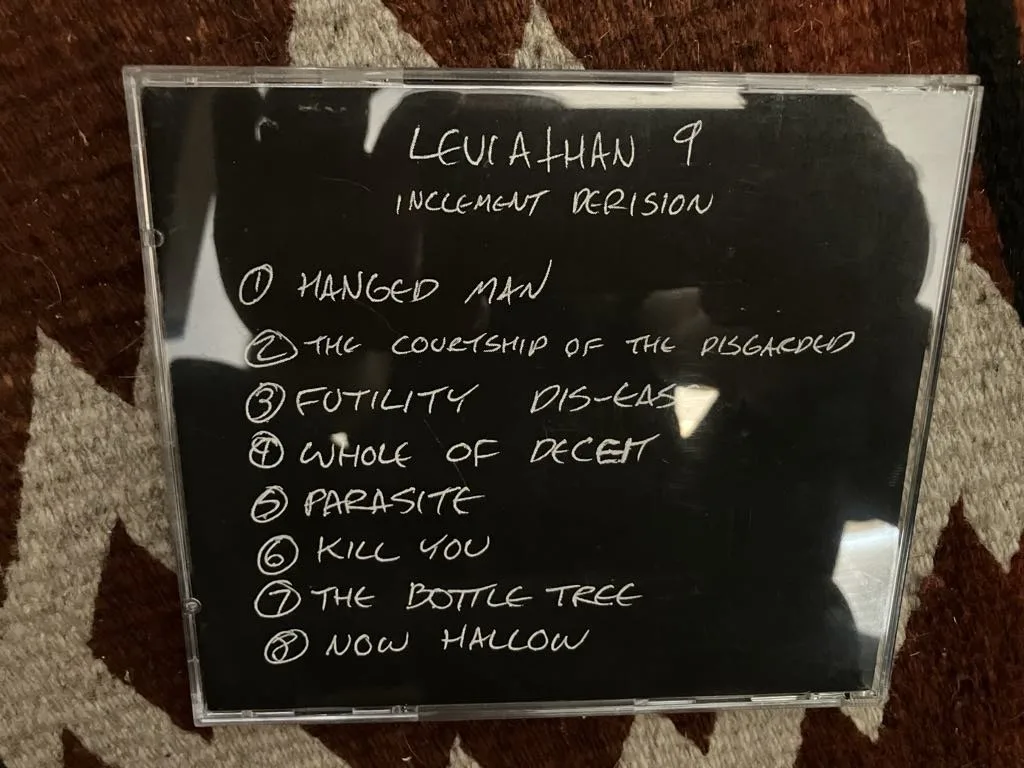 LEVIATHAN 9
INCLEMENT DERISION
① HANGED MAN
② THE COURTSHIP OF THE DISGARDED
③ FUTILITY DIS-EASE
④ WHOLE OF DECEIT
⑤ PARASITE
⑥ KILL YOU
⑦ THE BOTTLE TREE
⑧ NOW HALLOW